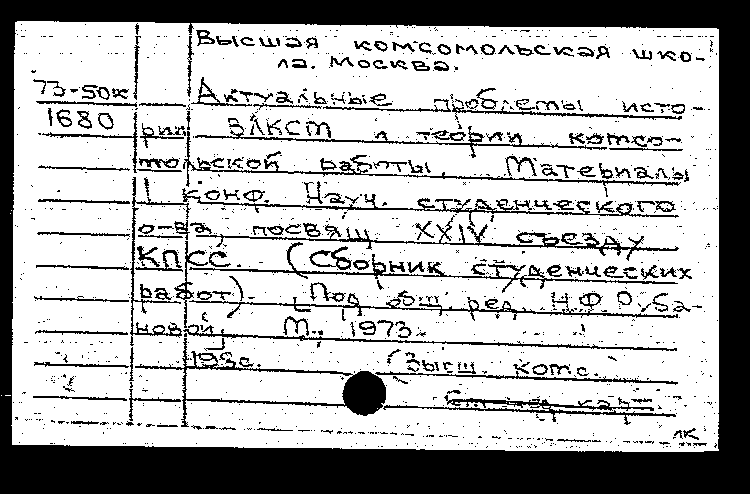 Высшая комсомольская шко-
ла. Москва.
73-50к Актуальные проблемы исто-
1680 рии ВЛКСМ и теории комсо-
мольской работы. Материалы
I конф. Науч. студенческого
о-ва, посвящ XXIV съезду
КПСС. (Сборник студенческих
работ). [Под общ. ред. Н.Ф.
новой] М., 1973.
193с. (Высш. комс.
лк